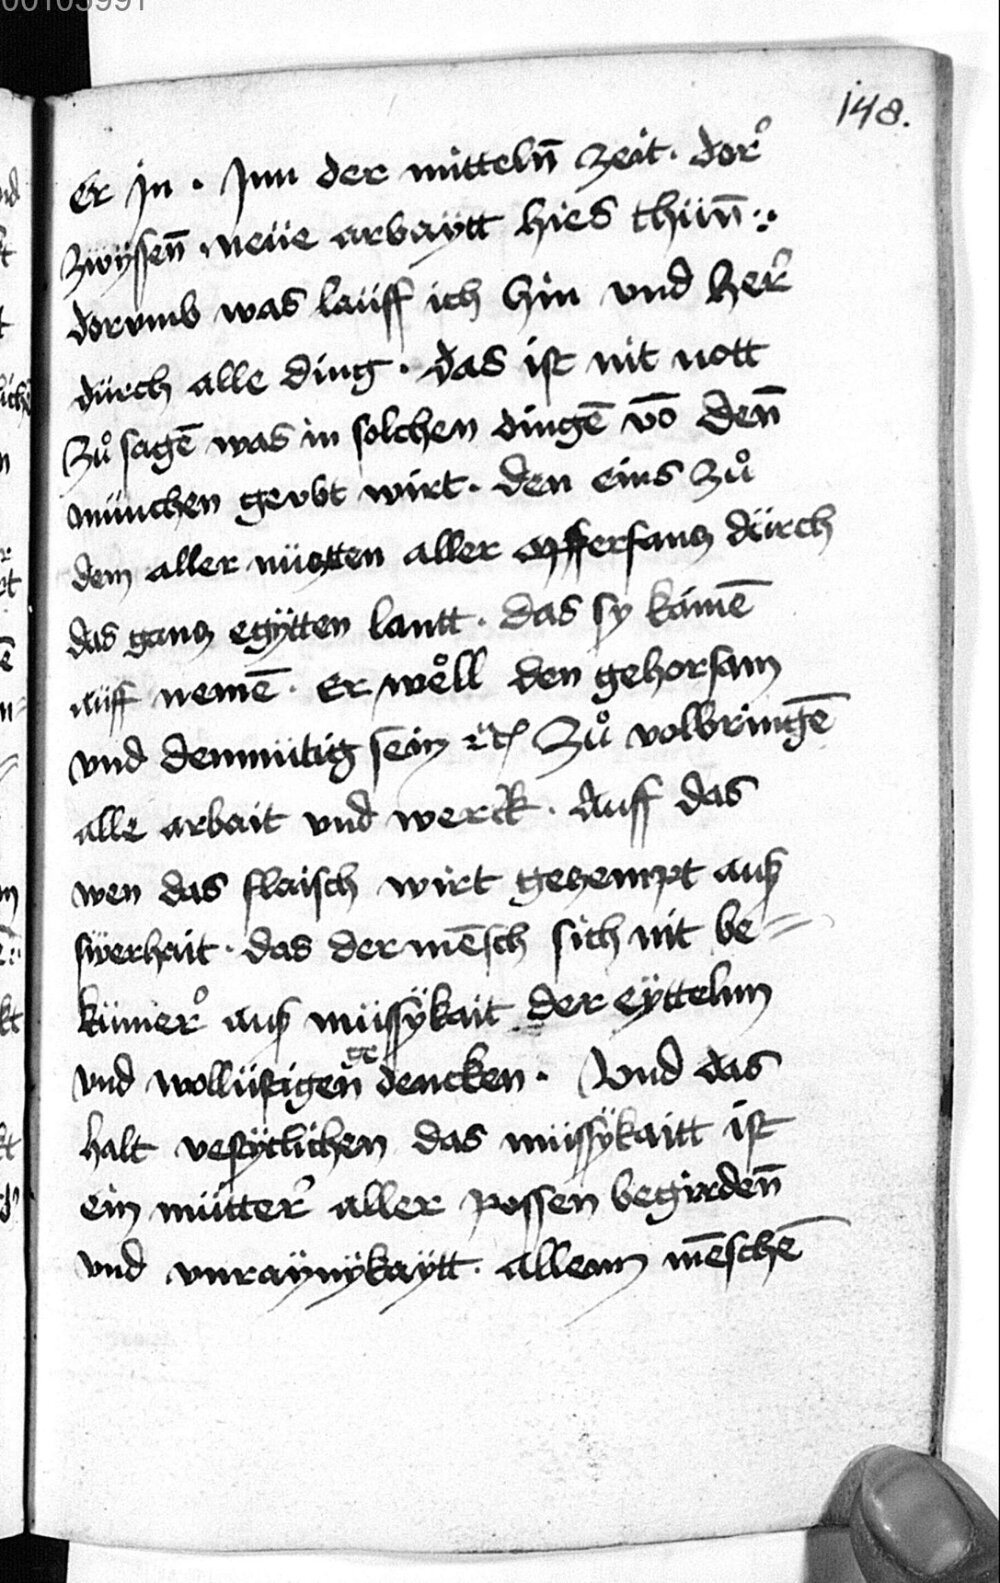 00103991
148.
Er jn . Jnn der mitteln̄ zeit . dor
zwÿssen̄ neüe arbaÿtt hies thün̄ :
dorvmb was laüff ich hin vnd her
dürch alle ding . das ist nit nott
Zů sagē was in solchen dingē vō den̄
münchen geubt wirt . den eins zů
dem aller nützten aller durch
das gantz egÿtten lantt . das sy kainē
auff nemē . Er wöll den gehorsam
vnd demmütig sein ꝛcͭ Zů volbringē
alle arbait vnd werck . Auff das
wen das flaisch wirt gezempt auß
swerhait . das der mēsch sich nit be=
kümer auß müssÿkait der eÿtteln
vnd wollüstigen̄ gedencken . Vnd das
halt vestÿclichen das müssÿkaitt ist
ein mütter aller possen begirden̄
vnd vnraÿnÿkaÿtt . allenn mēschē